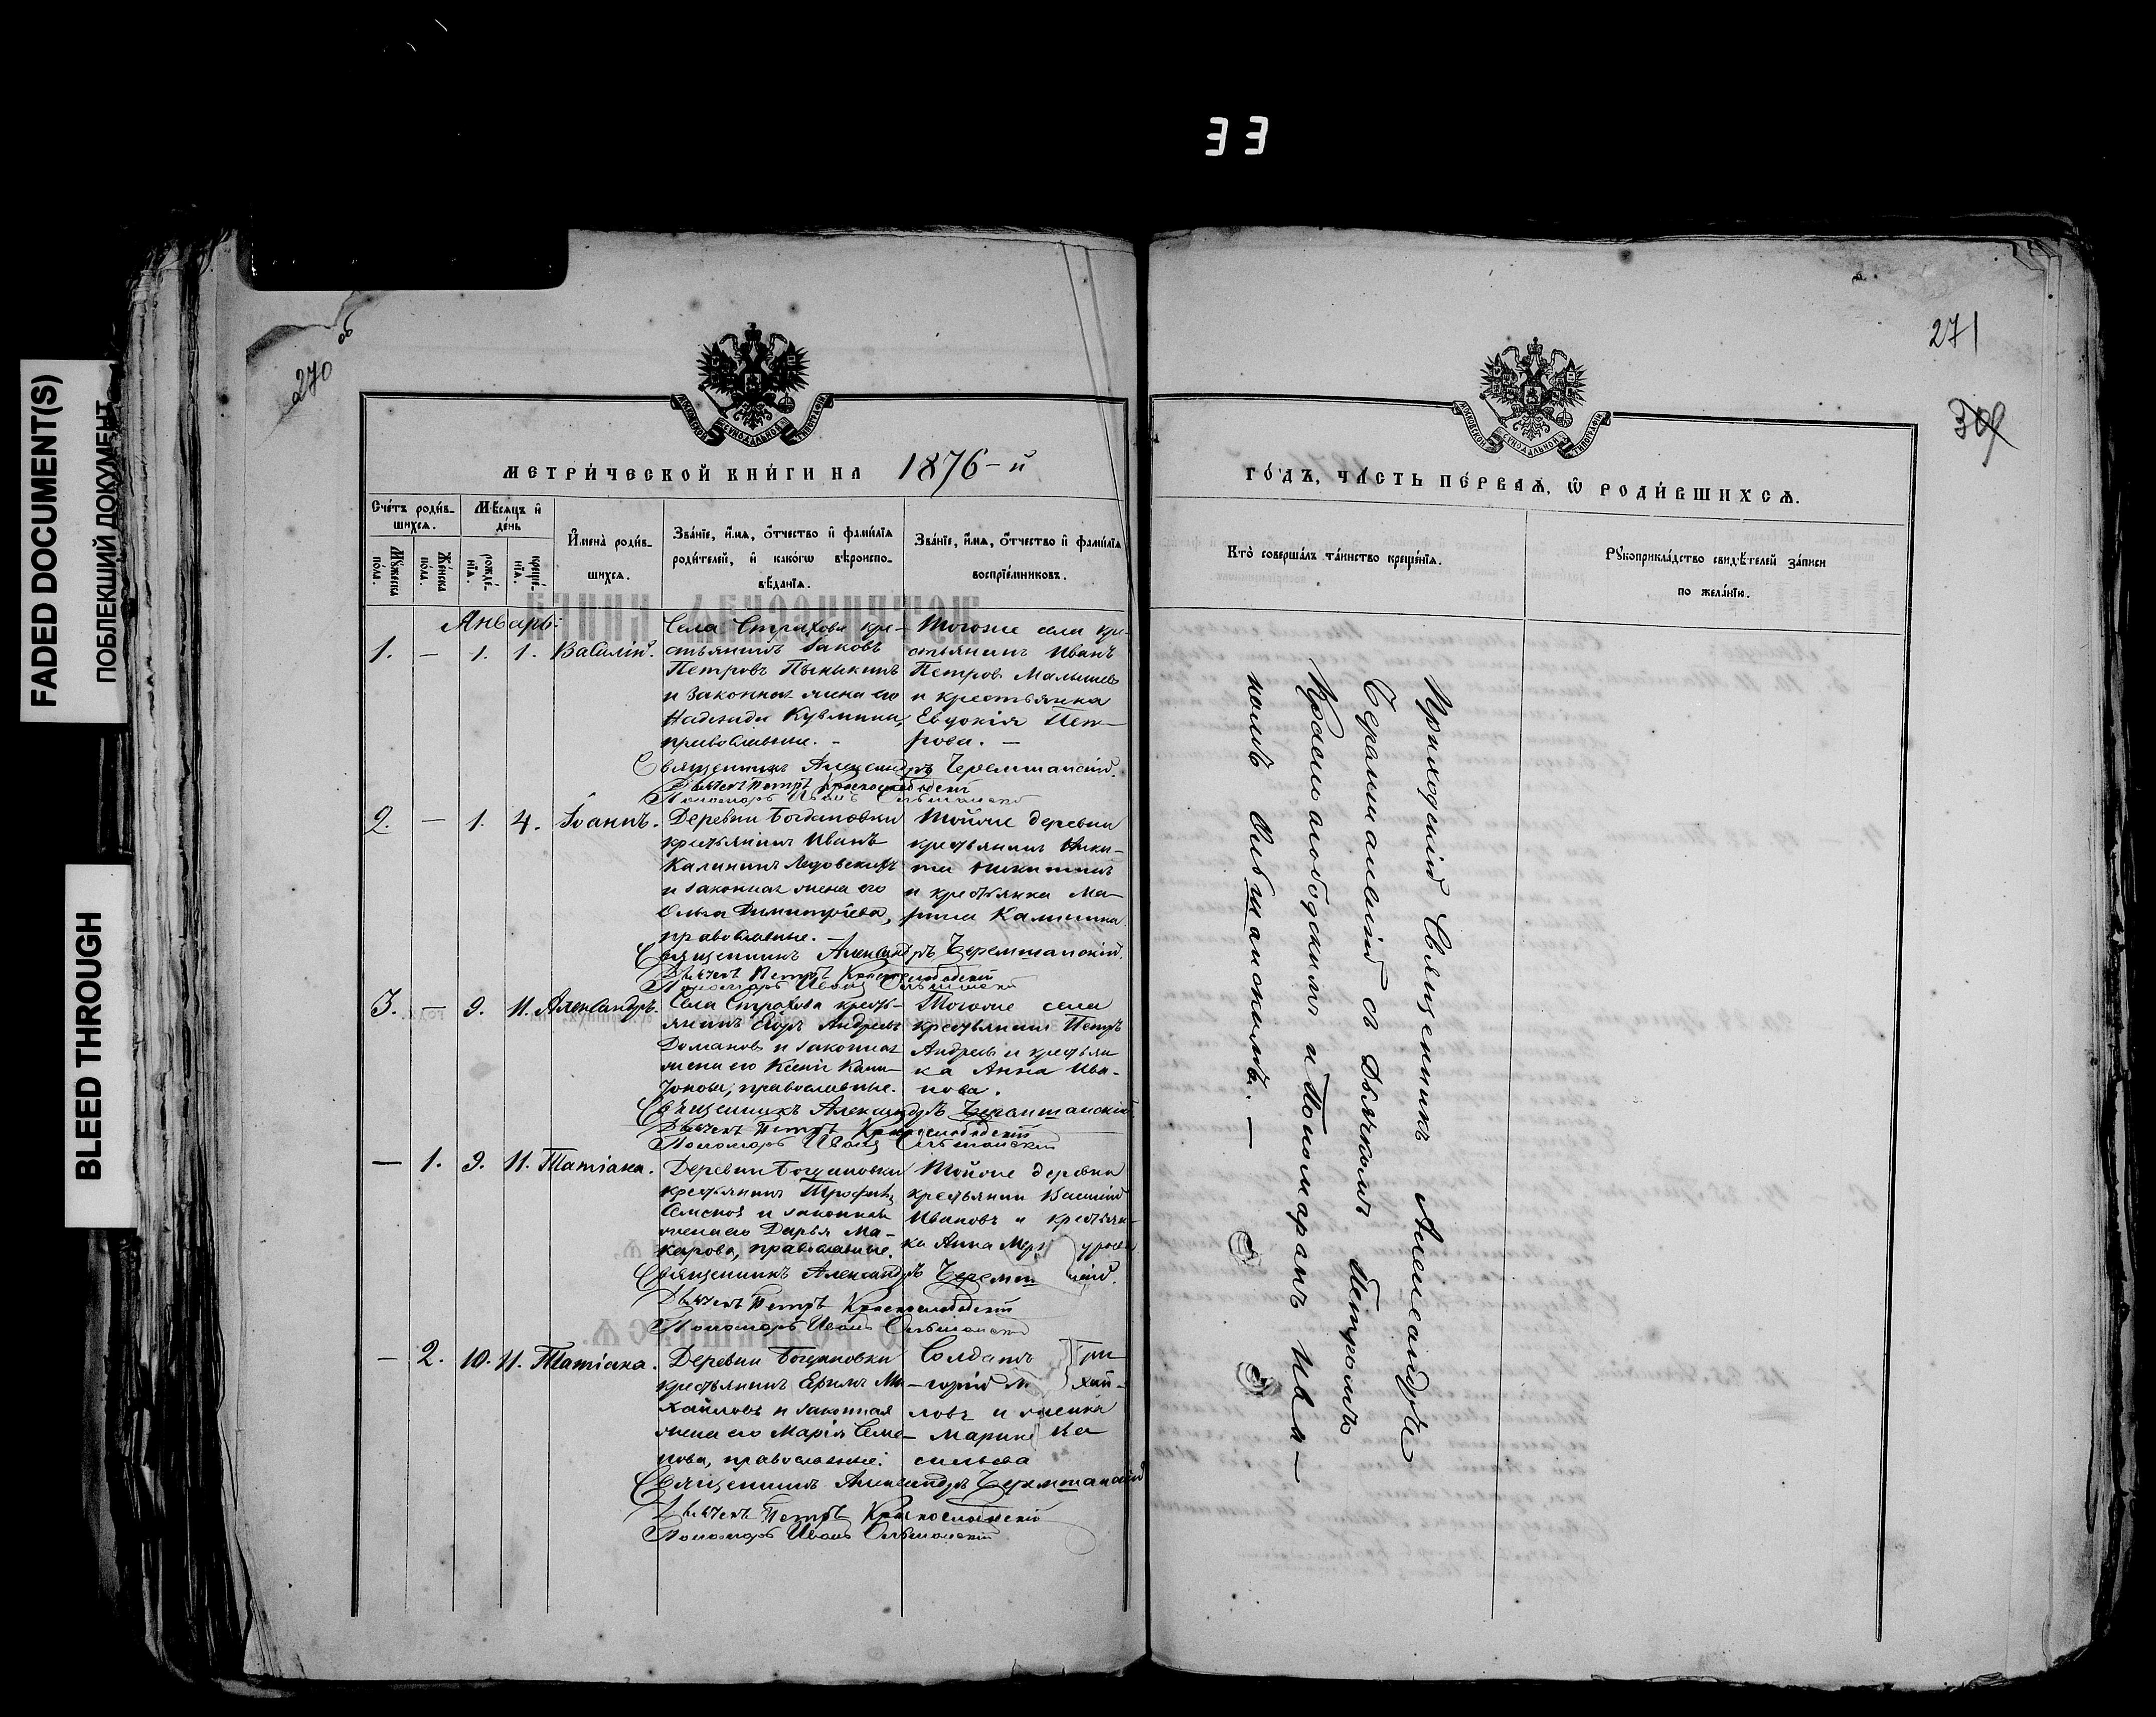 33
FADED DOCUMENT(S)
ПОБЛЕКШИЙ ДОКУМЕНТ
BLEED THROUGH
270 об
271
МЕТРИ́ЧЕСКОЙ КНИ́ГИ НА 1876-й
ГО́ДЪ, ЧА́СТЬ ПЕ́РВАѦ, Ѽ РОДИ́ВШИХСѦ.
Сче́тъ роди́в-
шихсѧ.
Мꙋ́жеска
по́ла.
Же́нска
по́ла.
Мѣ́сѧцъ и҆
де́нь
рожде́-
нїѧ.
креще́-
нїѧ.
И҆мена̀ роди́в-
шихсѧ.
Зва́нїе, и҆́мѧ, ѻ҆́тчество и҆ фами́лїѧ
роди́телей, и҆ како́гѡ вѣроиспо-
вѣ́данїѧ.
Зва́нїе, и҆́мѧ, ѻ҆́тчество и҆ фами́лїѧ
воспрїе́мниковъ.
Кто̀ соверша́лъ та́инство креще́нїѧ.
Рꙋкоприкла́дство свидѣ́телей за́писи
по жела́нїю.
Январь:
1. — 1. 1. Василій.
Села Страхова кре-
стьянинъ Іаковъ
Петровъ
и законная жена его
Надежда Кузмина,
православные. –
Тогоже села кре-
стьянинъ Иванъ
Петровъ Малышевъ
и крестьянка
Евдокія Пет-
рова. —
Священникъ Александръ Черемшанскій.
Дьячекъ Петръ Краснослободскій
Пономарь Иванъ Ольшанскій
2. — 1. 4. Іоаннъ.
Деревни Богдановки
крестьянинъ Иванъ
Калининъ Ледовскихъ
и законная жена его
Ольга Димитріева,
православные. —
Тойже деревни
крестьянинъ Ники-
та Никитинъ
и крестьянка Ма-
рина Калинина
Священникъ Александръ Черемшанскій.
Дьячекъ Петръ Краснослободскій
Пономарь Иванъ Ольшанскій
3. — 9. 11. Александръ.
Села Страхова кресть-
янинъ Егоръ Андреевъ
Домановъ и законная
жена его Ксенія Капи-
тонова, православные.
Тогоже села
крестьянинъ Петръ
Андреевъ и крестьян
ка Анна Ива-
нова.
Священникъ Александръ Черемшанскій
Дьячекъ Петръ Краснослободскій
Пономарь Иванъ Ольшанскій
— 1. 9. 11. Татіана.
Деревни Богдановки
крестьянинъ Трофимъ
и законная
жена его Дарья Ма-
карова, православные.
Тойже деревни
крестьянинъ Василій
Ивановъ и крестьян-
ка Анна
Священникъ Александръ
Дьячекъ Петръ Краснослободскій
Пономарь Иванъ Ольшанскій
— 2. 10. 11. Татіана.
Деревни Богдановки
крестьянинъ Ефимъ Ми-
хайловъ и законная
жена его Марія Семе-
нова, православные.
Солдатъ Гри
горій Михай-
ловъ и
Марина Ва
сильева
Священникъ Александръ Черемшанскій
Дьячекъ Петръ Краснослободскій
Пономарь Иванъ Ольшанскій
Приходскій Священникъ Александръ
Черемшанскій съ Дьячкомъ Петромъ
Краснослободскимъ и Пономаремъ Ива-
номъ Ольшанскимъ. —